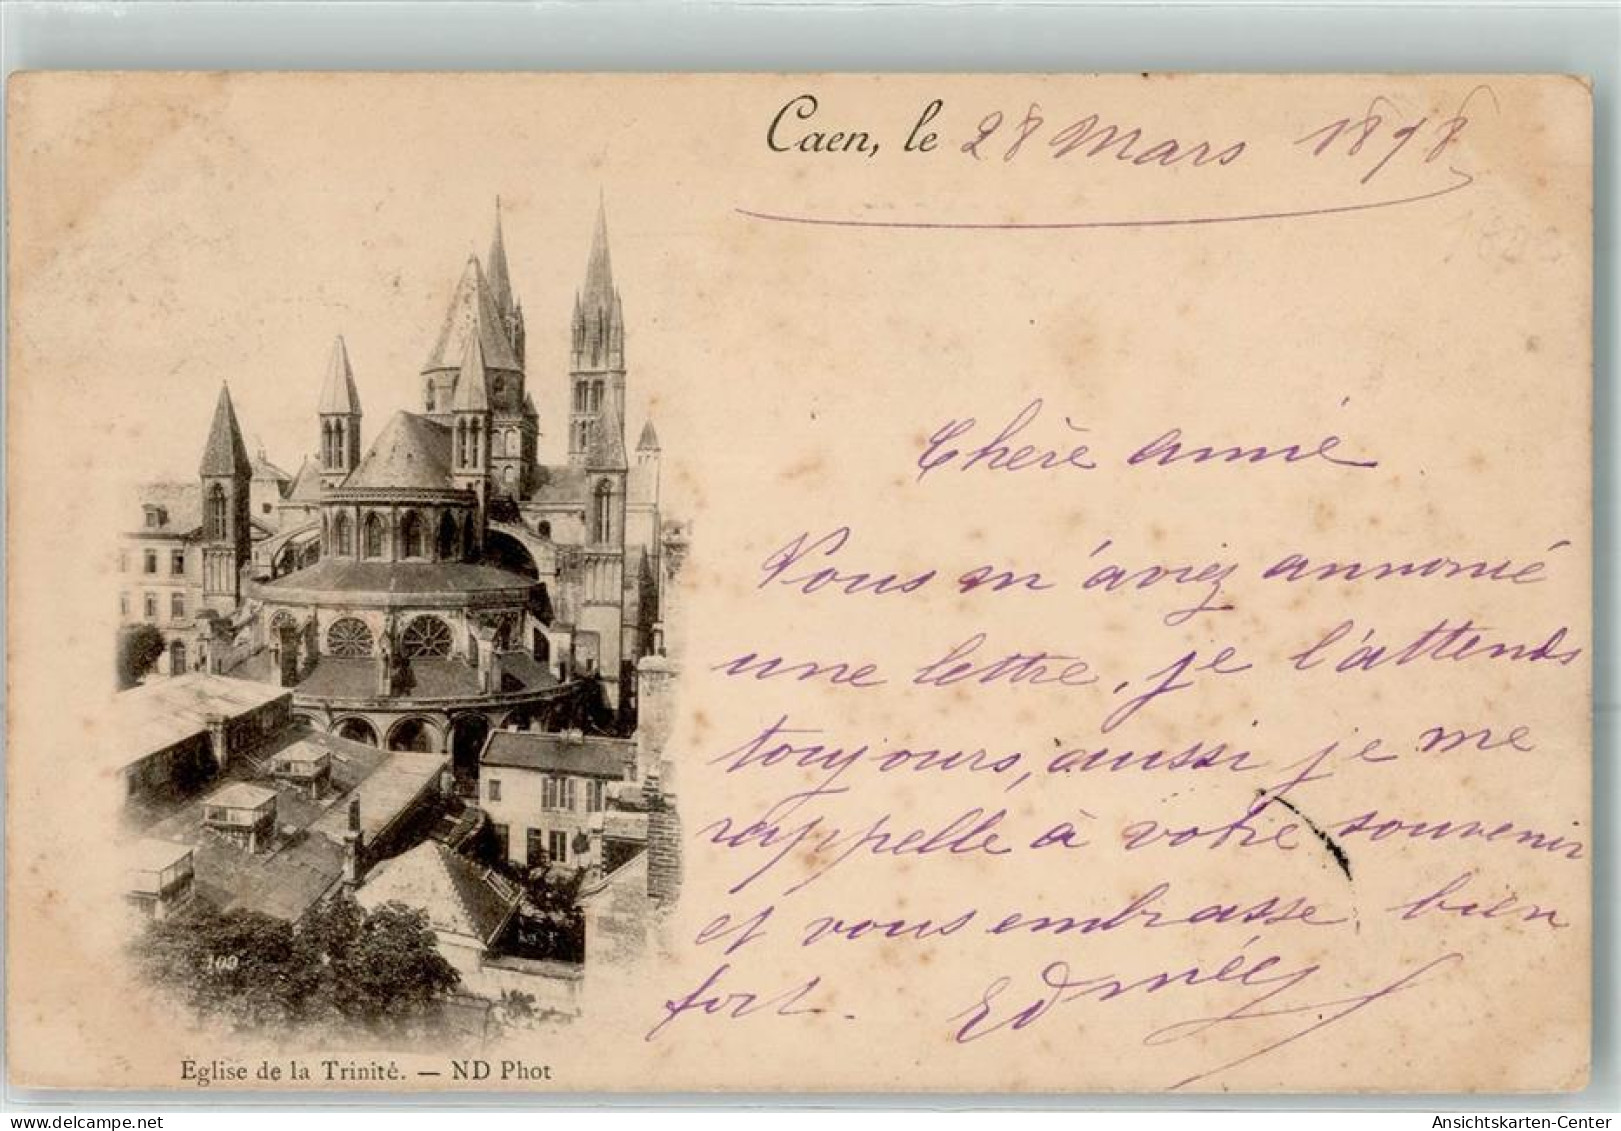 Caen, le 28 Mars 1898
Chère amie
Vous m'aviez annoncé
une lettre, je l'attends
toujours, aussi je me
rappelle à votre souvenir
et vous embrasse bien
fort. Edmée
109
Eglise de la Trinité. — ND Phot
Ansichtskarten-Center